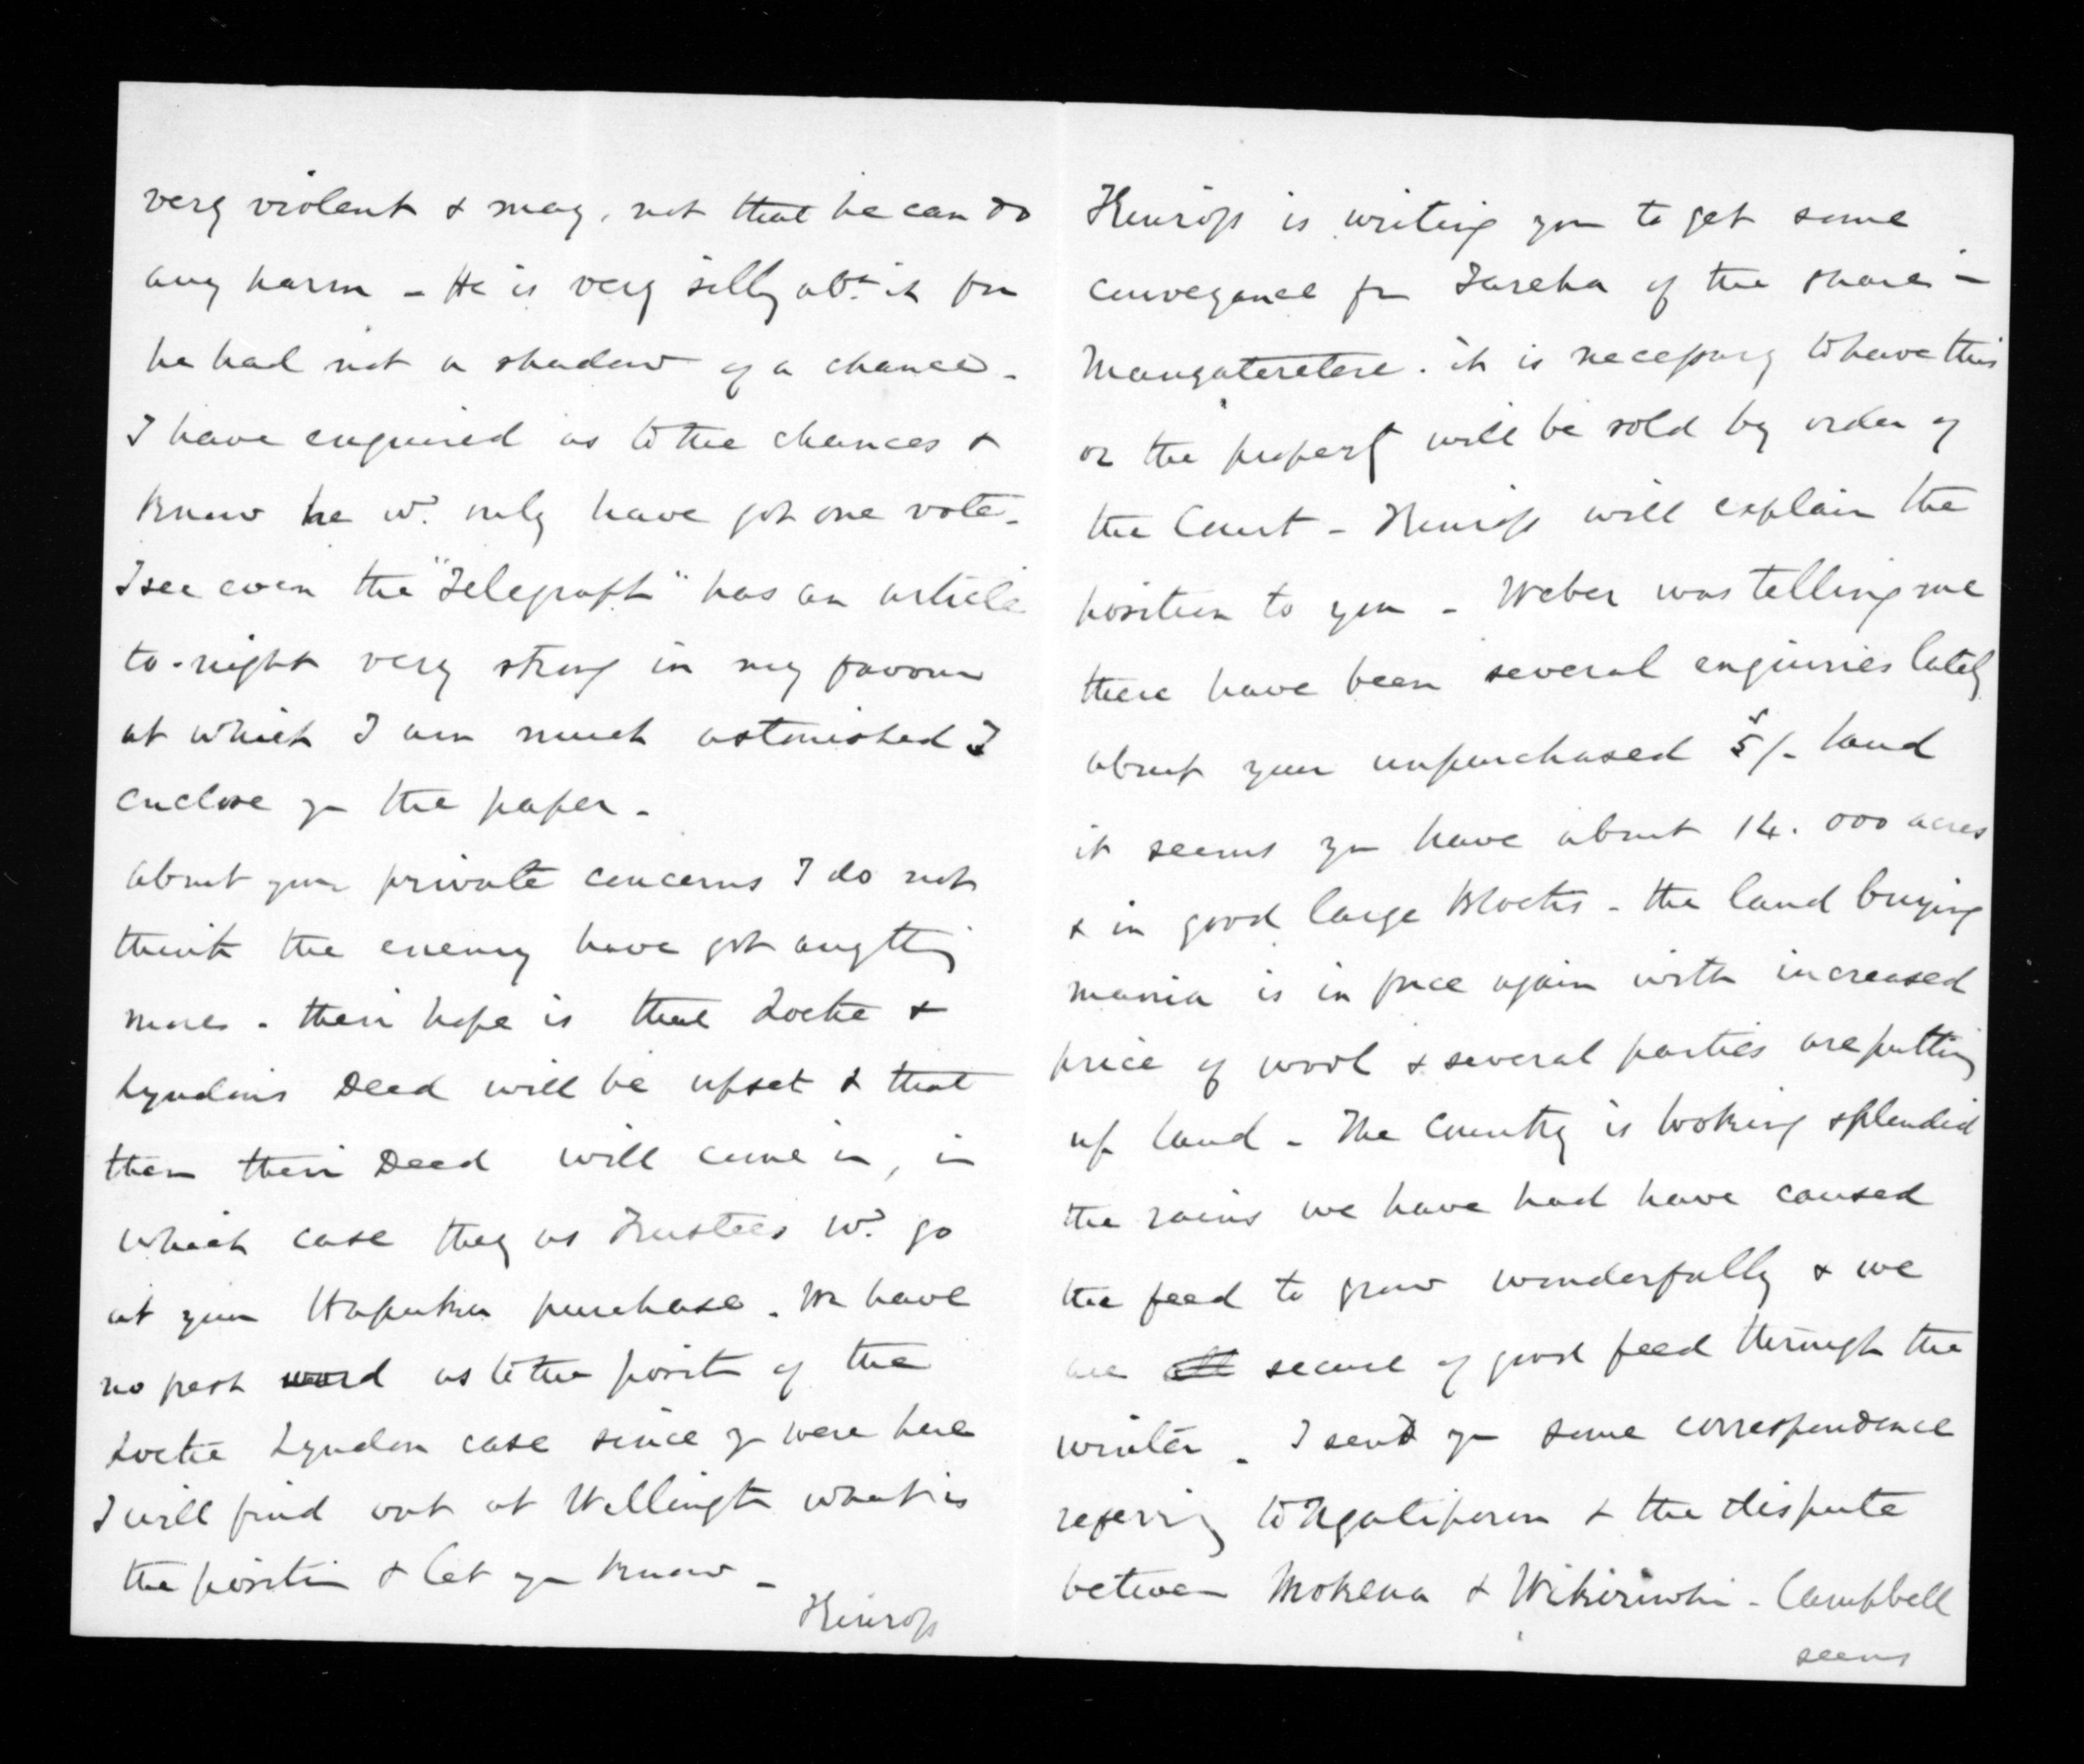 very violent & may, not that he can do
any harm - He is very silly abt. it for
he had not a shadow of a chance -
I have enquired as to the chances &
know he wd. only have got one vote -
I see even the "Telegraph" has an article
to-night very strong in my favour
at which I am much astonished I
enclose yu the paper -
About your private concerns I do not
think the enemy have got anything
more - their hope is that Locke &
Lyndon's Deed will be upset & that
then their Deed will come in, in
which case they as Trustees wd. go
at your Hapuku purchase. We have
no fresh word as to the posit of the
Locke Lyndon case since yu were here
I will find out at Wellington what is
the position & let yu know -
Kinross
Kinross is writing you to get some
conveyance fm Tareha of the shares -
Mangateretere. it is necessary to have this
or the property will be sold by order of
the Court - Kinross will explain the
position to you - Weber was telling me
there have been several enquiries lately
about your unpurchased 5/- land
it seems yu have about 14.000 acres
& in good large Blocks - the land buying
mania is in force again with increased
price of wool & several parties are putting
up land - The Country is looking splendid
the rains we have had have caused
the feed to grow wonderfully & we
are all secure of good feed through the
winter - I send yu some correspondence
referring to Ngatiporou & the dispute
between Mokena & Wikiriwhi - Campbell
seems